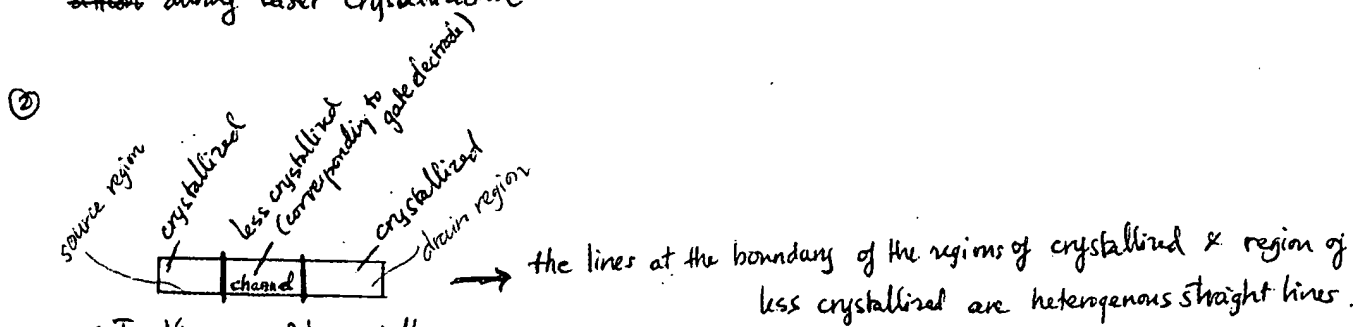 during laser crystallization
②
source region
crystallized
less crystallized
(corresponding to
gate electrode)
crystallized
drain region
channel
the lines at the boundary of the regions of crystallized & region of
less crystallized are heterogenous straight lines.